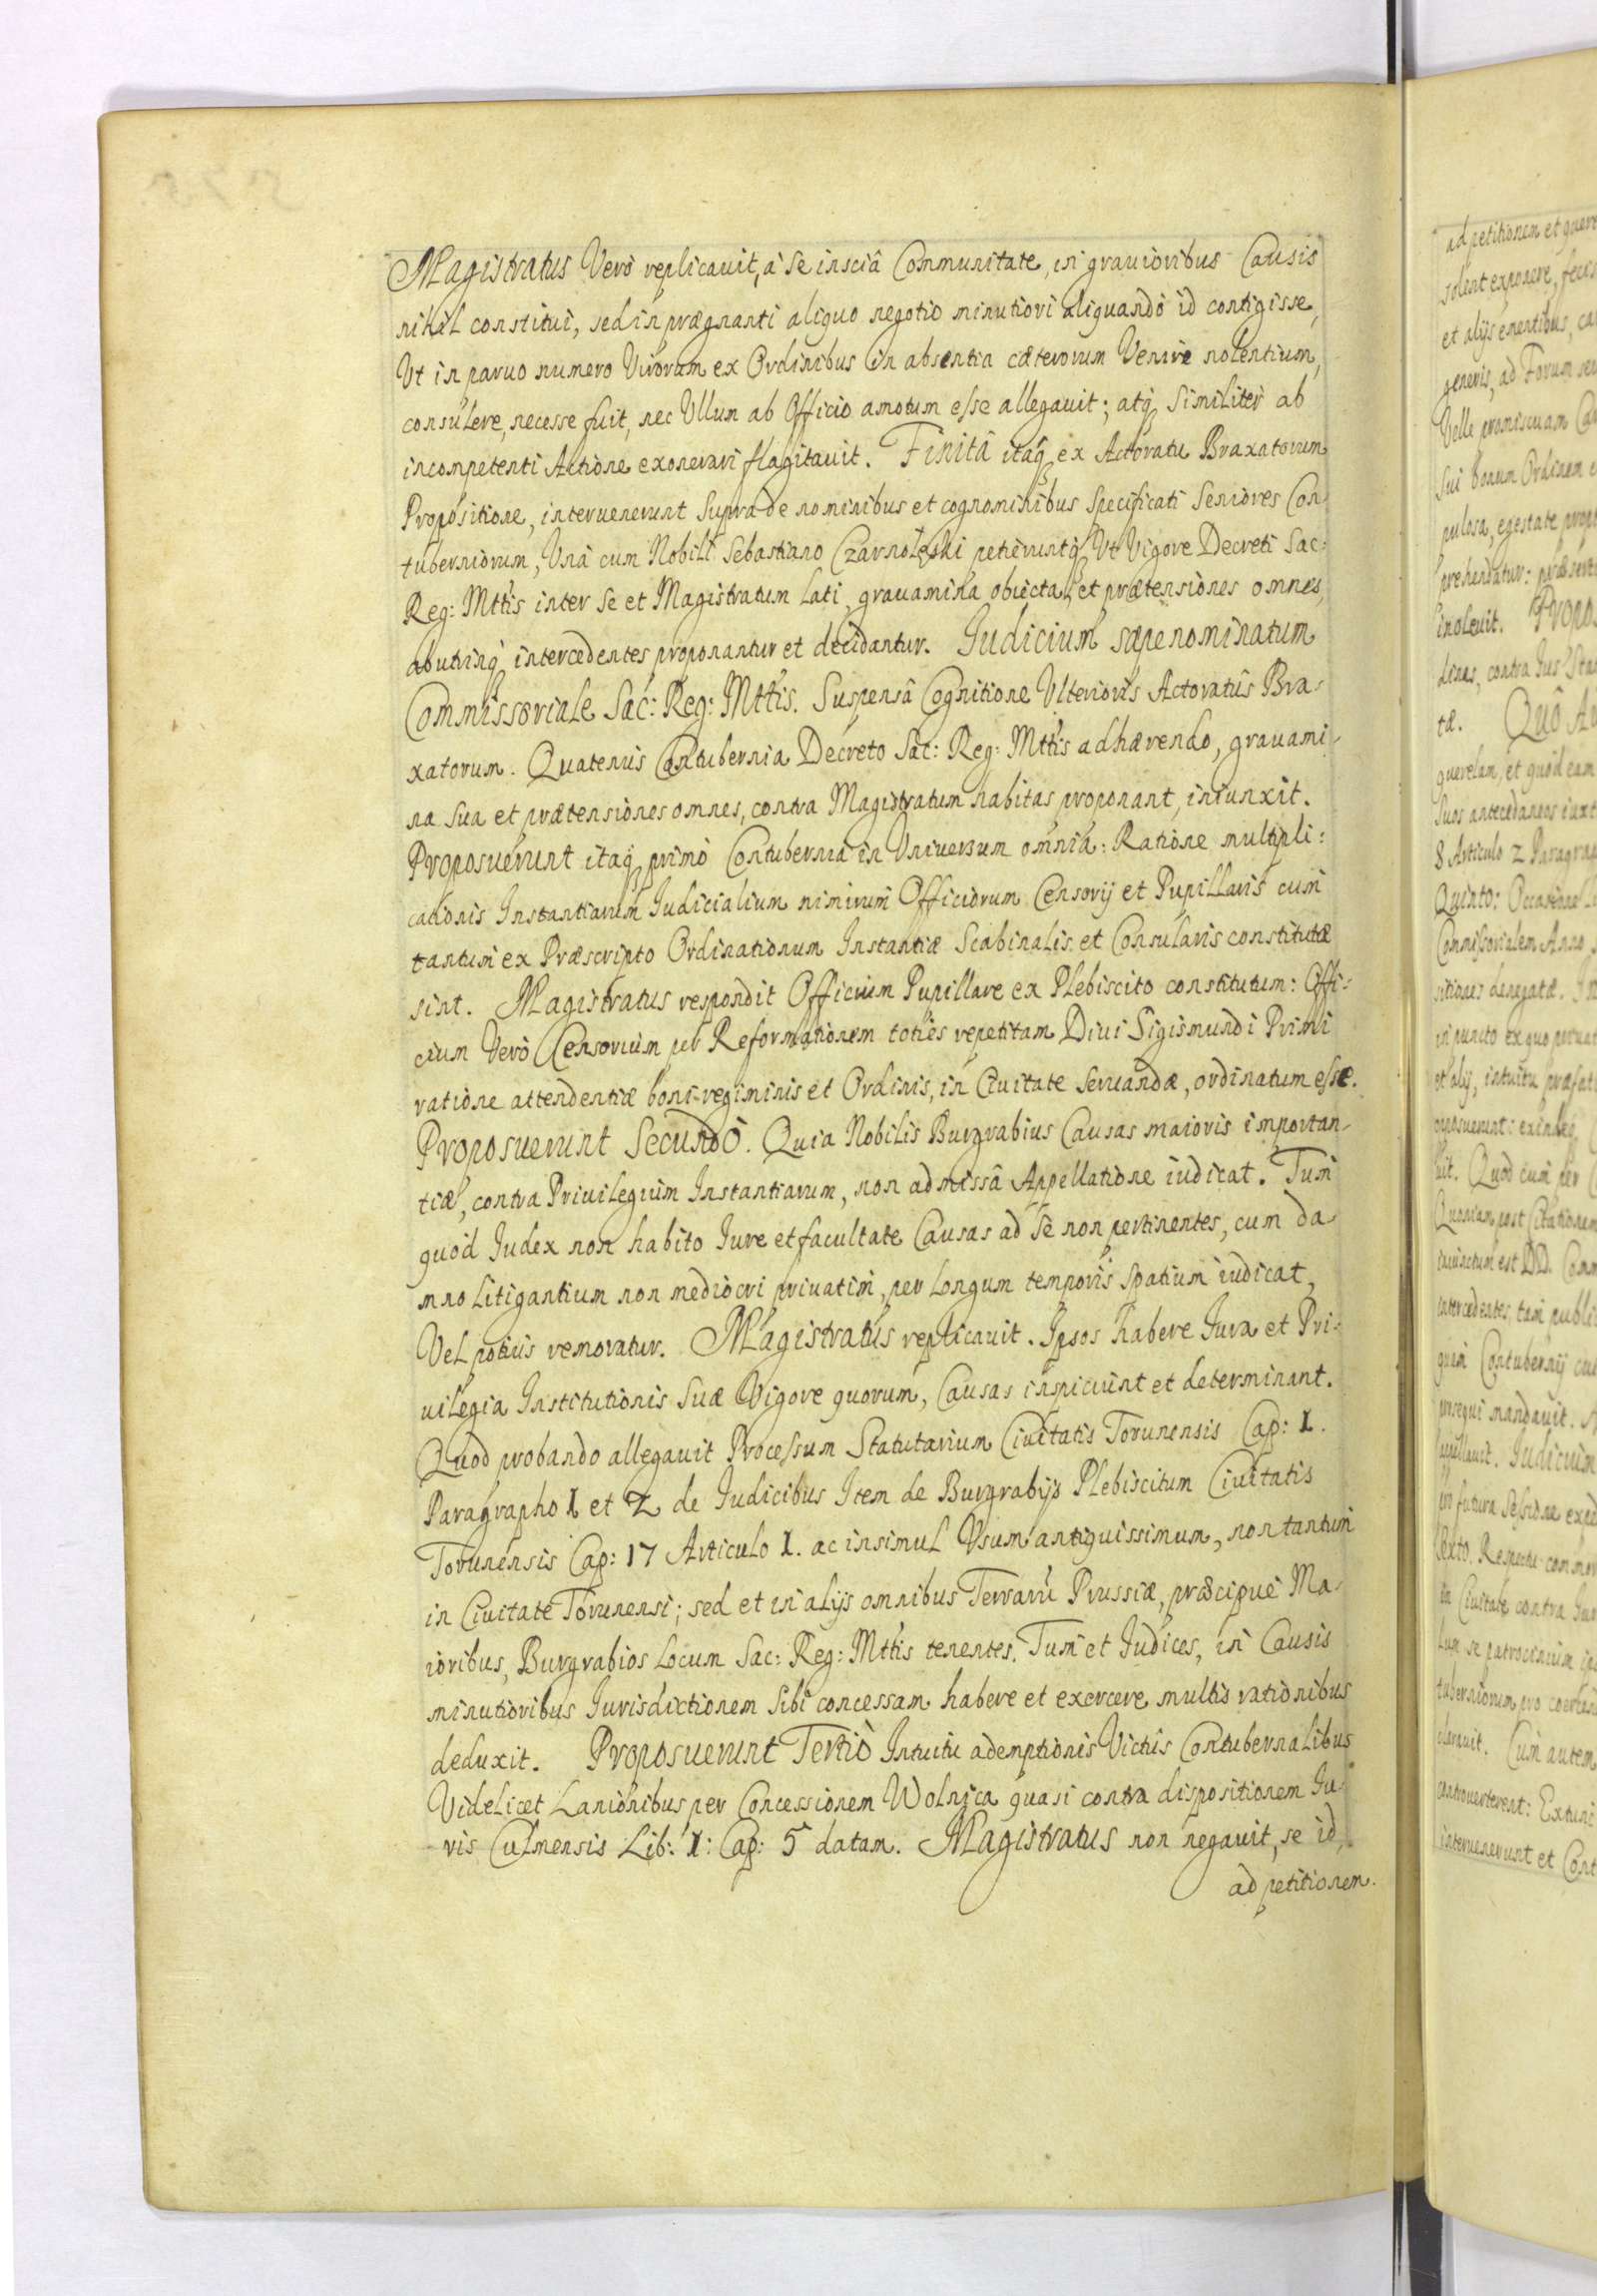 Magistratus Verò replicauit, à Se insciâ Communitate, in grauioribus Causis
nihil constitui, sed in prægnanti aliquo negotio minutiori aliquandò id contigisse,
Vt in paruo numero Virorum ex Ordinibus in absentia cæterorum Venire nolentium,
consulere, necesse fuit, nec Ullum ab Officio amotum esse allegauit; atq̃ Similiter ab
incompetenti Actione exonerari flagitauit. Finitâ itaq̃ ex Actoratu Braxatorum
Propositione, interuenerunt Supra de nominibus et cognominibus Specificati Seniores Con-
tuberniorum, Vnà cum Nobili Sebastiano Czarnoleski petieruntq̃, Vt Vigore Decreti Sac:
Reg: Mttis inter Se et Magistratum Lati, grauamina obiecta, et prætensiones omnes,
abutrinq̃ intercedentes proponantur et decidantur. Judicium sæpe nominatum
Commissoriale Sac: Reg: Mttis. Suspensâ Cognitione Vlterioris Actoratûs Bra-
xatorum. Quatenus Contubernia Decreto Sac: Reg: Mttis adhærendo, grauami-
na Sua et prætensiones omnes, contra Magistratum habitas proponant, iniunxit.
Proposuerunt itaq̃ primò Contubernia in Vniuersum omnia: Ratione multipli:
cationis Instantiarum Judicialium nimirum Officiorum Censorij et Pupillaris cum
tantum ex Præscripto Ordinationum Instantiæ Scabinalis et Consularis constitutæ
sint. Magistratus respondit Officium Pupillare ex Plebiscito constitutum: Offi-
cium Verò Censorium per Reformationem toties repetitam Diui Sigismundi Primi
ratione attendentiæ boni regiminis et Ordinis, in Ciuitate Seruandæ, ordinatum esse.
Proposuerunt Secundò. Quia Nobilis Burgrabius Causas maioris importan-
tiæ, contra Priuilegium Instantiarum, non admissâ Appellatione iudicat. Tum
quòd Judex non habito Jure et facultate Causas ad Se non pertinentes, cum da-
mno Litigantium non mediocri priuatim, per Longum temporis Spatium iudicat,
Vel potius remoratur. Magistratus replicauit. Ipsos habere Jura et Pri-
uilegia Institutionis Suæ Vigore quorum, Causas inspiciunt et determinant.
Quod probando allegauit Processum Statutarium Ciuitatis Torunensis Cap: 1.
Paragrapho 1 et 2 de Judicibus Item de Burgrabijs Plebiscitum Ciuitatis
Torunensis Cap: 17 Articulo 1. ac insimul Vsum antiquissimum, non tantum
in Ciuitate Torunensi; sed et in alijs omnibus Terrarũ Prussiæ, præcipuè Ma-
ioribus, Burgrabios Locum Sac: Reg: Mttis tenentes. Tum et Judices, in Causis
minutioribus Jurisdictionem Sibi concessam habere et exercere multis rationibus
deduxit. Proposuerunt Tertiò Intuitu ademptionis Victûs Contubernalibus
Videlicet Lanionibus per Concessionem Wolnica quasi contra dispositionem Ju-
ris Culmensis Lib: 1: Cap: 5 datam. Magistratus non negauit, se id,
ad petitionem.
ad petitionem et quere
solent exponere, fecis
et alijs ementibus, ca
generis, ad Forum
Velle promiscuam
Sui bonum Ordinem e
pulosa, egestate prop
prehendatur: præsert
inoleuit. Propos
dines, contra Jus Sta
tæ. Quô
querelam, et quòd eam
Suos antecedaneos iuxt
8 Articulo 2 Paragra
Quinto: Occasione
Commissorialem Anno
sitiones denegatæ.
in puncto ex quo
et alij, intuitu præfat
Quod cum per
Quoniam post Citationem
iniunctum est DD. Comm
intercedentes tam publi
quàm Contubernij
prosequi mandauit.
appellauit. Judicium
pro futura Sessione
Sexto. Respectu
in Ciuitate contra
Lum se patrocinium
tuberniorum pro
Cum autem
controuerterent: Extunc
interuenerunt et Cont